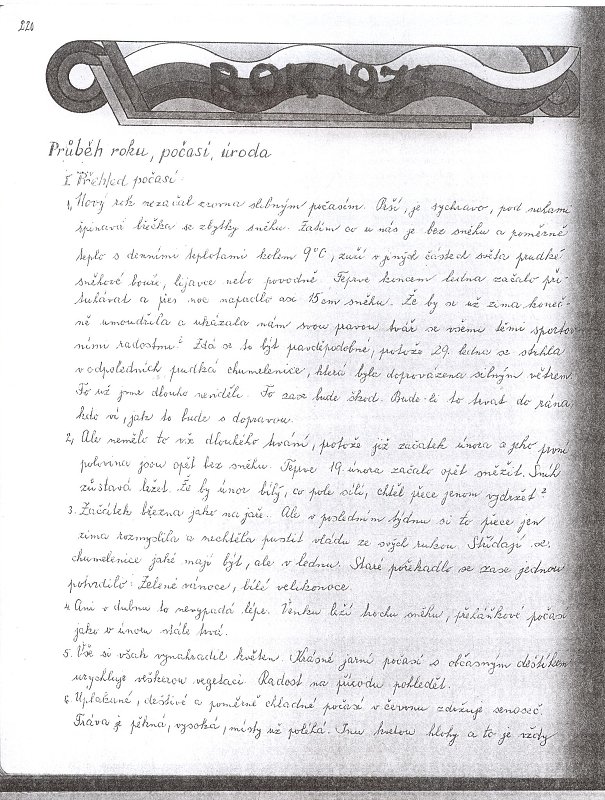 220
ROK 1975
Průběh roku, počasí, úroda
I. Přehled počasí
1, Nový rok nezačal zrovna slibným počasím. Prší, je sychravo, pod nohami
špinavá břečka se zbytky sněhu. Zatím co u nás je bez sněhu a poměrně
teplo s denními teplotami kolem 9°C, zuří v jiných částech světa prudké
sněhové bouře, lijavce nebo povodně. Teprve koncem ledna začalo při-
tuhávat a přes noc napadlo asi 15 cm sněhu. Že by se už zima koneč-
ně umoudřila a ukázala nám svou pravou tvář se všemi těmi sportov-
ními radostmi? Zdá se to být pravděpodobné, protože 29. ledna se strhla
v odpoledních prudká chumelenice, která byla doprovázena silným větrem.
To už jsme dlouho neviděli. To zase bude škod. Bude-li to trvat do rána,
kdo ví, jak to bude s dopravou.
2, Ale nemělo to víc dlouhého trvání, protože již začátek února a jeho první
polovina jsou opět bez sněhu. Teprve 19. února začalo opět sněžit. Sníh
zůstává ležet. Že by únor bílý, co pole sílí, chtěl přece jenom vydržet?
3. Začátek března jako na jaře. Ale v posledním týdnu si to přece jen
zima rozmyslila a nechtěla pustit vládu ze svých rukou. Střídají se
chumelenice jaké mají být, ale v lednu. Staré pořekadlo se zase jednou
potvrdilo: Zelené vánoce, bílé velikonoce.
4. Ani v dubnu to nevypadá lépe. Venku leží trochu sněhu, přeháňkové počasí
jako v únoru stále trvá.
5. Vše si však vynahradil květen. Krásné jarní počasí s občasným deštíkem
urychluje veškerou vegetaci. Radost na přírodu pohledět.
6. Uplakané, deštivé a poměrně chladné počasí v červnu zdržuje senoseč.
Tráva je pěkná, vysoká, místy už poléhá. Jinu kvetou hlohy a to je vždy